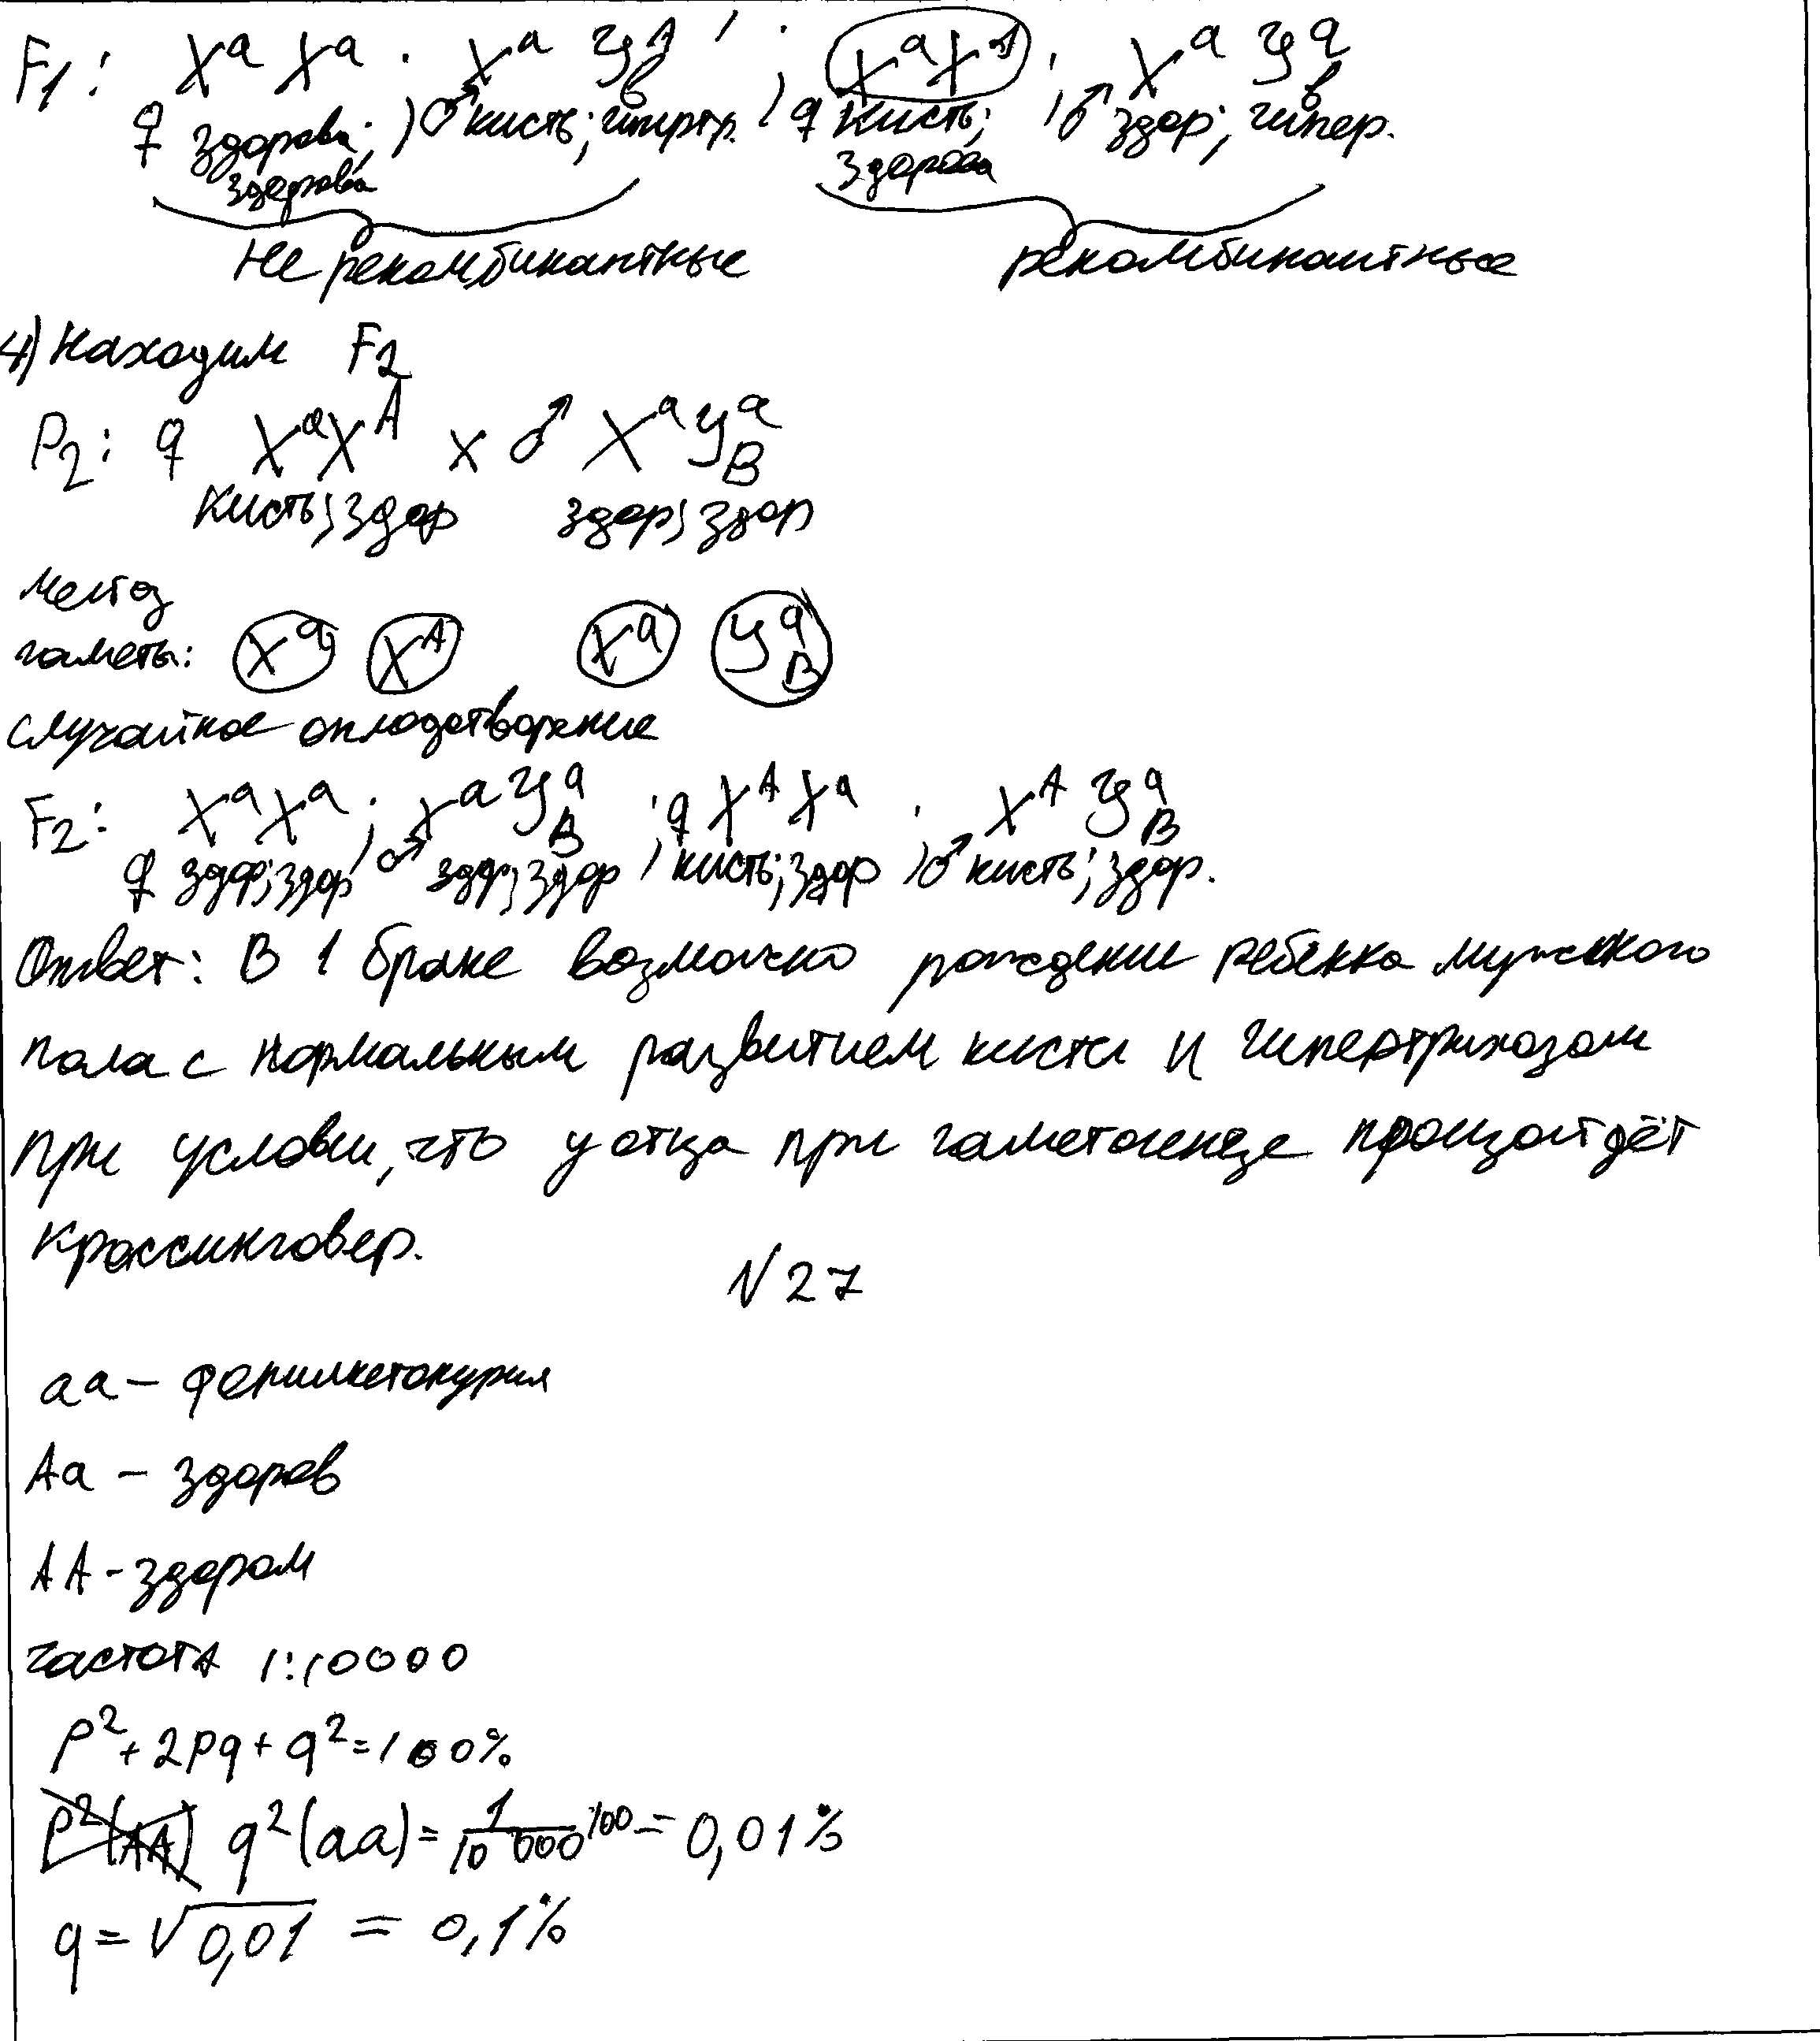 F1: XᵃXᵃ ; XᵃYᴬв ; XᵃXᴬ ; XᵃYᵃв
♀ здорова; ) ♂ кисть; гиптр. ) ♀ кисть; ) ♂ здор; гипер.
здорова здорова
Не рекомбинантные рекомбинантные
4) Находим F2
P2: ♀ XᵃXᴬ x ♂ XᵃYᵃB
кисть; здор здор; здор
гаметы: Xᵃ Xᴬ Xᵃ YᵃB
случайное оплодотворение
F2: XᵃXᵃ ; XᵃYᵃB ; ♀ XᴬXᵃ ; XᴬYᵃB
♀ здор; здор ♂ здор; здор ) кисть; здор ) ♂ кисть; здор.
Ответ: В 1 браке возможно рождение ребёнка мужского
пола с нормальным развитием кисти и гипертрихозом
при условии, что у отца при гаметогенезе произойдёт
кроссинговер.
№ 27
aa – фенилкетонурия
Aa – здоров
AA - здором
частота 1:10000
p² + 2pq + q² = 100%
p²(AA) q²(aa) = 1/10 000 · 100 = 0,01%
q = √0,01 = 0,1%